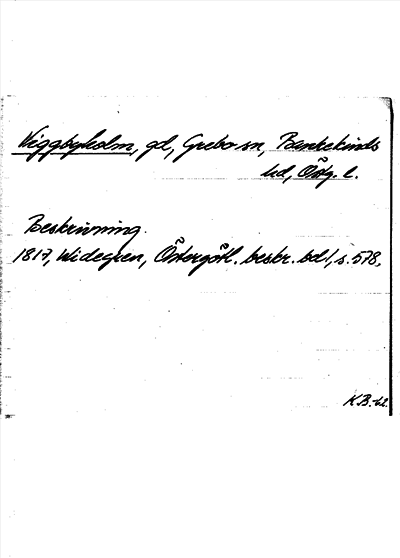 Viggbyholm, gd, Grebo sn, Bankekinds
hd, Östg. l.
Beskrivning.
1817, Widegren, Östergötl. beskr. bd 1, s. 578.
K.B.